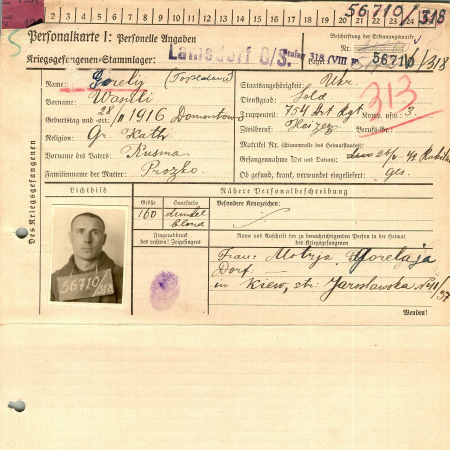 56710/318
1 2 3 4 5 6 7 8 9 10 11 12 13 14 15 16 17 18 19 20 21 22 23 24 25
Personalkarte I: Personelle Angaben
Kriegsgefangenen-Stammlager: Lamsdorf O/S. Stalag 318 (VIII F)
Beschriftung der Erkennungsmarke
Nr. 56710/318
Des Kriegsgefangenen
Name: Gorelij
Vorname: Wassili
Geburtstag und -ort: 28/II 1916 Domontow
Religion: Gr. Kath
Vorname des Vaters: Kusma
Familienname der Mutter: Prozko
Staatsangehörigkeit: Ukr.
Dienstgrad: Sold
Truppenteil: 754 Art Rgt Komp. usw.: 3.
Zivilberuf: Heizer Berufs-Gr.:
313
Matrikel Nr. (Stammrolle des Heimatstaates):
Gefangennahme (Ort und Datum): 42
Ob gesund, krank, verwundet eingeliefert: ges.
Lichtbild
56710/318
Nähere Personalbeschreibung
Größe Haarfarbe Besondere Kennzeichen:
160 dunkel blond
Fingerabdruck des rechten! Zeigefingers
Name und Anschrift der zu benachrichtigenden Person in der Heimat des Kriegsgefangenen
Frau: Motrja Gorelaja
Dorf
in Kiew, str. Jaroslawska N 41/37
Wenden!